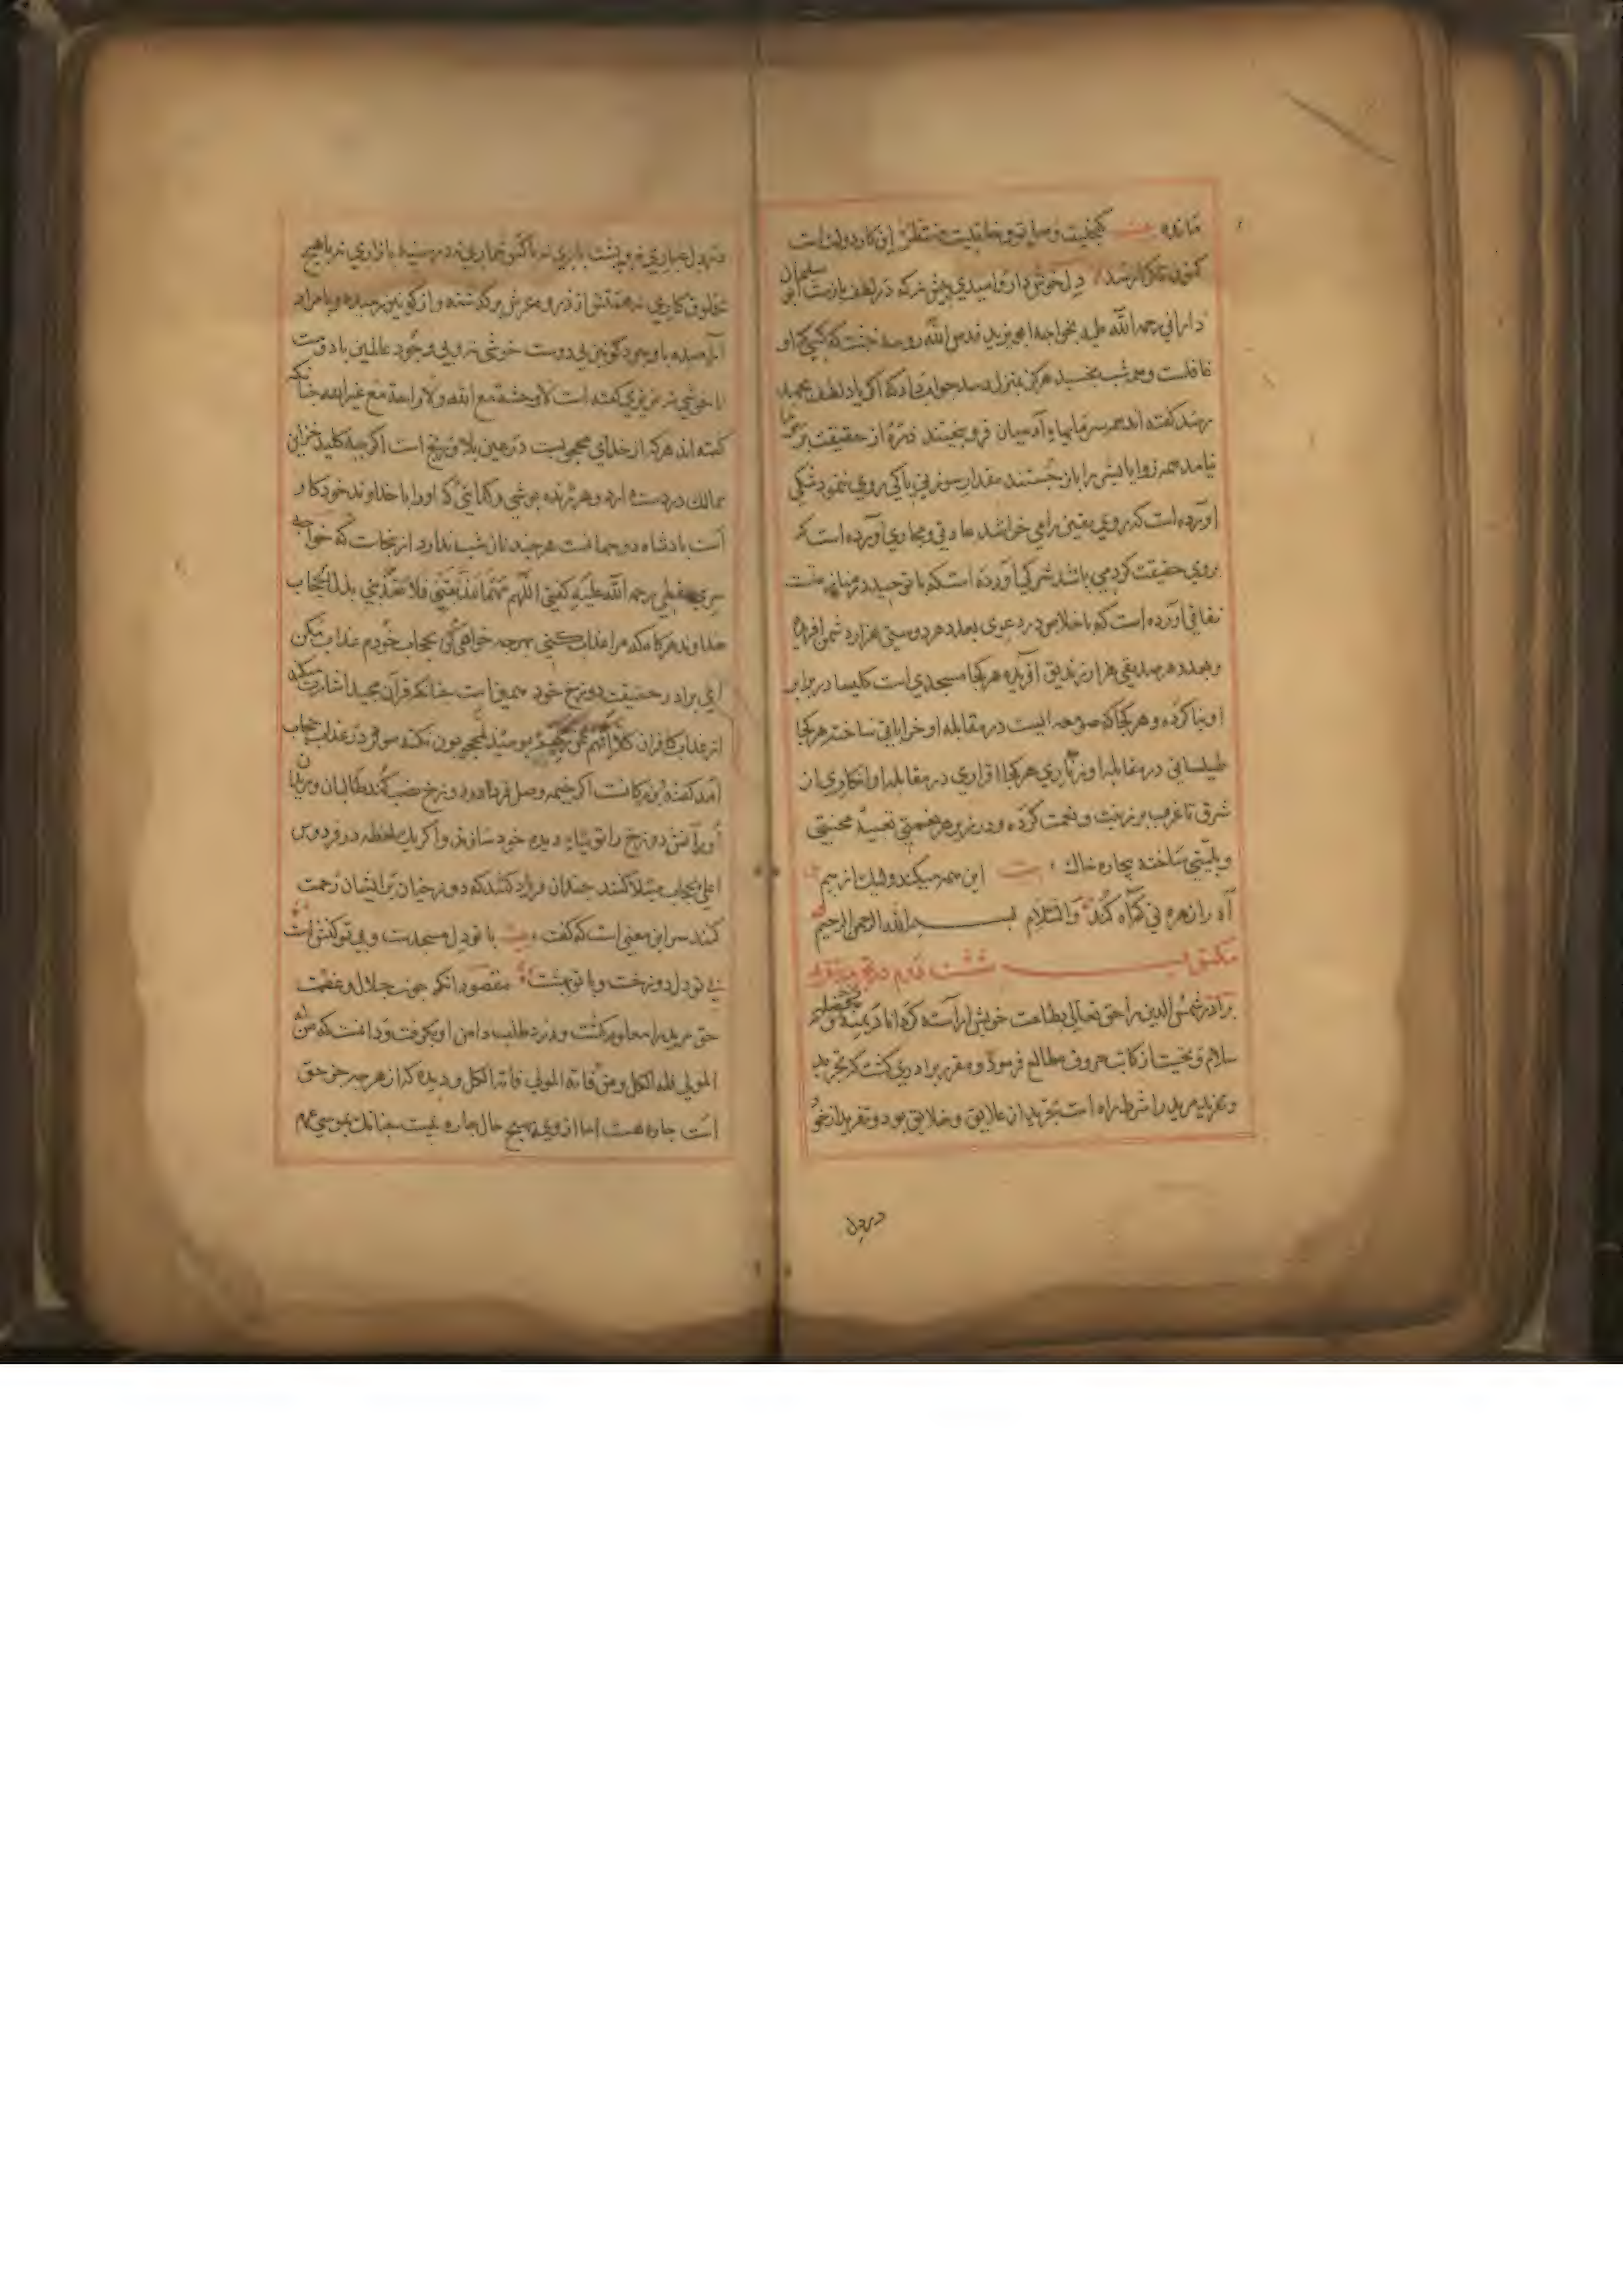 مانده بیت گنجیست وصل تو و خلقیست منتظر این کار دولت است
کنون تا کرا رسد دل خوش دار و امیدی پیش نه که در لطف باز است سلیمان
دارانی رحمه الله علیه بخواجه ابو یزید قدس الله روحه نبشت که کسی که او
غافلست و همه شب بخسبد هرگز بمنزل رسد جواب داد که اگر باد لطف بجهد
برسد گفته اند همه سرمایهای آدمیان فرو بیختند ذرهٔ از حقیقت بر
نیامد همه زوایای بشر را باز جستند مقدار سوزنی پاکی روی ننمود شکی
آورده است که بروی یقین را می خوانند عادتی و مجازی آورده است که
بروی حقیقت کرد می باشد شرکی آورده است که با توحید در میانه است
نفاقی آورده است که با اخلاص در دعوی بعدد هر دوستی هزار دشمن آفریده
و بعدد هر صدیقی هزار زندیق آفریده هر کجا مسجدی است کلیسا در برابر
او بنا کرده و هر کجا که صومعه ایست در مقابله او خراباتی ساخته هر کجا
طیلسانی در مقابله او زناری هر کجا اقراری در مقابله او انکاری از
شرق تا غرب پر زینت و نعمت کرده و در زیر هر نعمتی تعبیهٔ محنتی
و بلیتی ساخته بیچاره خاک بیت این همه میکند و لیک از بیم
آه را زهره نی که آه کند والسلام بسم الله الرحمن الرحیم
مکتوب شست
برادر شمس الدین را حق تعالی بطاعت خویش آراسته کرداناد
سلام و تحیت از کاتب حروف مطالع فرمود و مقرر برادری گشت که تجرید
و تفرید مرید را شرط راه است تجرید از علایق و خلایق بود و تفرید از خود
در دل
در دل غباری نه و پشت باری نه با کس شماری نه در سینه بازاری نه با هیچ
مخلوق کاری نه همتش از ذروه عرش برگذشته و از کونین رمیده و با مراد
آرمیده با وجود کونین بی دوست خوشی نه و بی وجود عالمین با دوست
ناخوشی نه عزیزی گفته است لا وحشة مع الله ولا راحة مع غیر الله چنانکه
گفته اند هر که از خدای محجوبست در عین بلا و رنج است اگر چه کلید خزاین
ممالک در دست دارد و هر ژنده پوشی و کدایی که او را با خداوند خود کار
است پادشاه دو جهانست هر چند نان شب ندارد از ینجاست که خواجه
سری سقطی رحمه الله علیه گفتی اللهم مهما عذبتنی فلا تعذبنی بذل الحجاب
خداوند هر گاه که مرا عذاب کنی بهر چه خواهی کن بحجاب خودم عذاب مکن
ای برادر حقیقت دوزخ خود همین است چنانکه قرآن مجید اشارت میکند
از عذاب کافران کلا انهم عن ربهم یومئذ لمحجوبون نکته سر در عذاب حجاب
آمد گفته بزرگانست اگر خیمه وصل فردا در دوزخ نصب کنند طالبان و مریدان
او را آتش دوزخ را توتیای دیده خود سازند و اگر یک لحظه در فردوس
اعلی بحجاب مبتلا کنند چندان فریاد کنند که دوزخیان را بر ایشان رحمت
کنند سر این معنی است که گفت بیت با تو دل مسجدست و بی تو کنشت
بی تو دل دوزخست و با تو بهشت مقصود آنکه چون جلال و عظمت
حق مرید را معلوم گشت و درد طلب دامن او بگرفت و دانست که من له
المولی فله الکل و من فاته المولی فاته الکل و دیده که از هر چه جز حق
است چاره هست اما از وی بهیچ حال چاره نیست چنانک بموسی عم